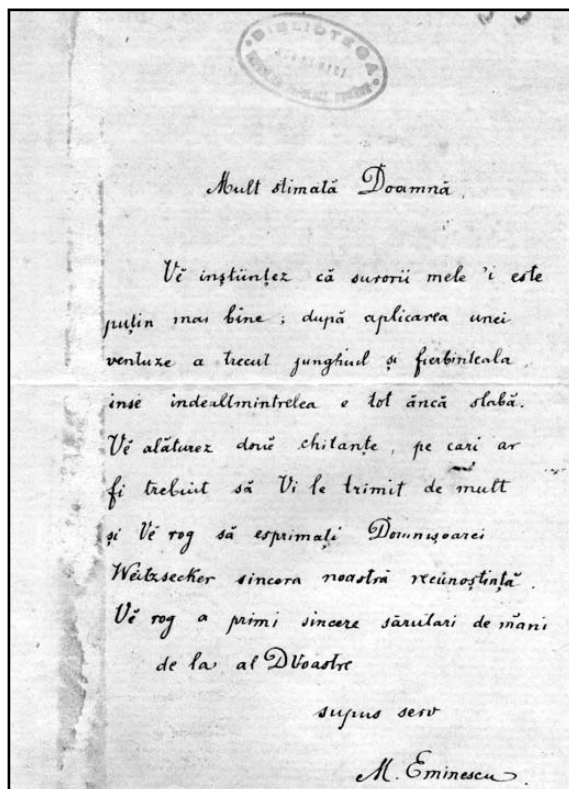 BIBLIOTECA
Mult stimată Doamnă
Vĕ inștiințez că surorii mele 'i este
puțin mai bine; după aplicarea unei
ventuze a trecut junghiul și fierbințeala
inse indealtmintrelea e tot ăncă slabă.
Vĕ alăturez douĕ chitanțe, pe cari ar
fi trebuit să Vi le trimit de mult
și Vĕ rog să esprimați Domnișoarei
Weitzsecker sincera noastră recunoștință.
Vĕ rog a primi sincere sărutari de măni
de la al DVoastre
supus serv
M. Eminescu.